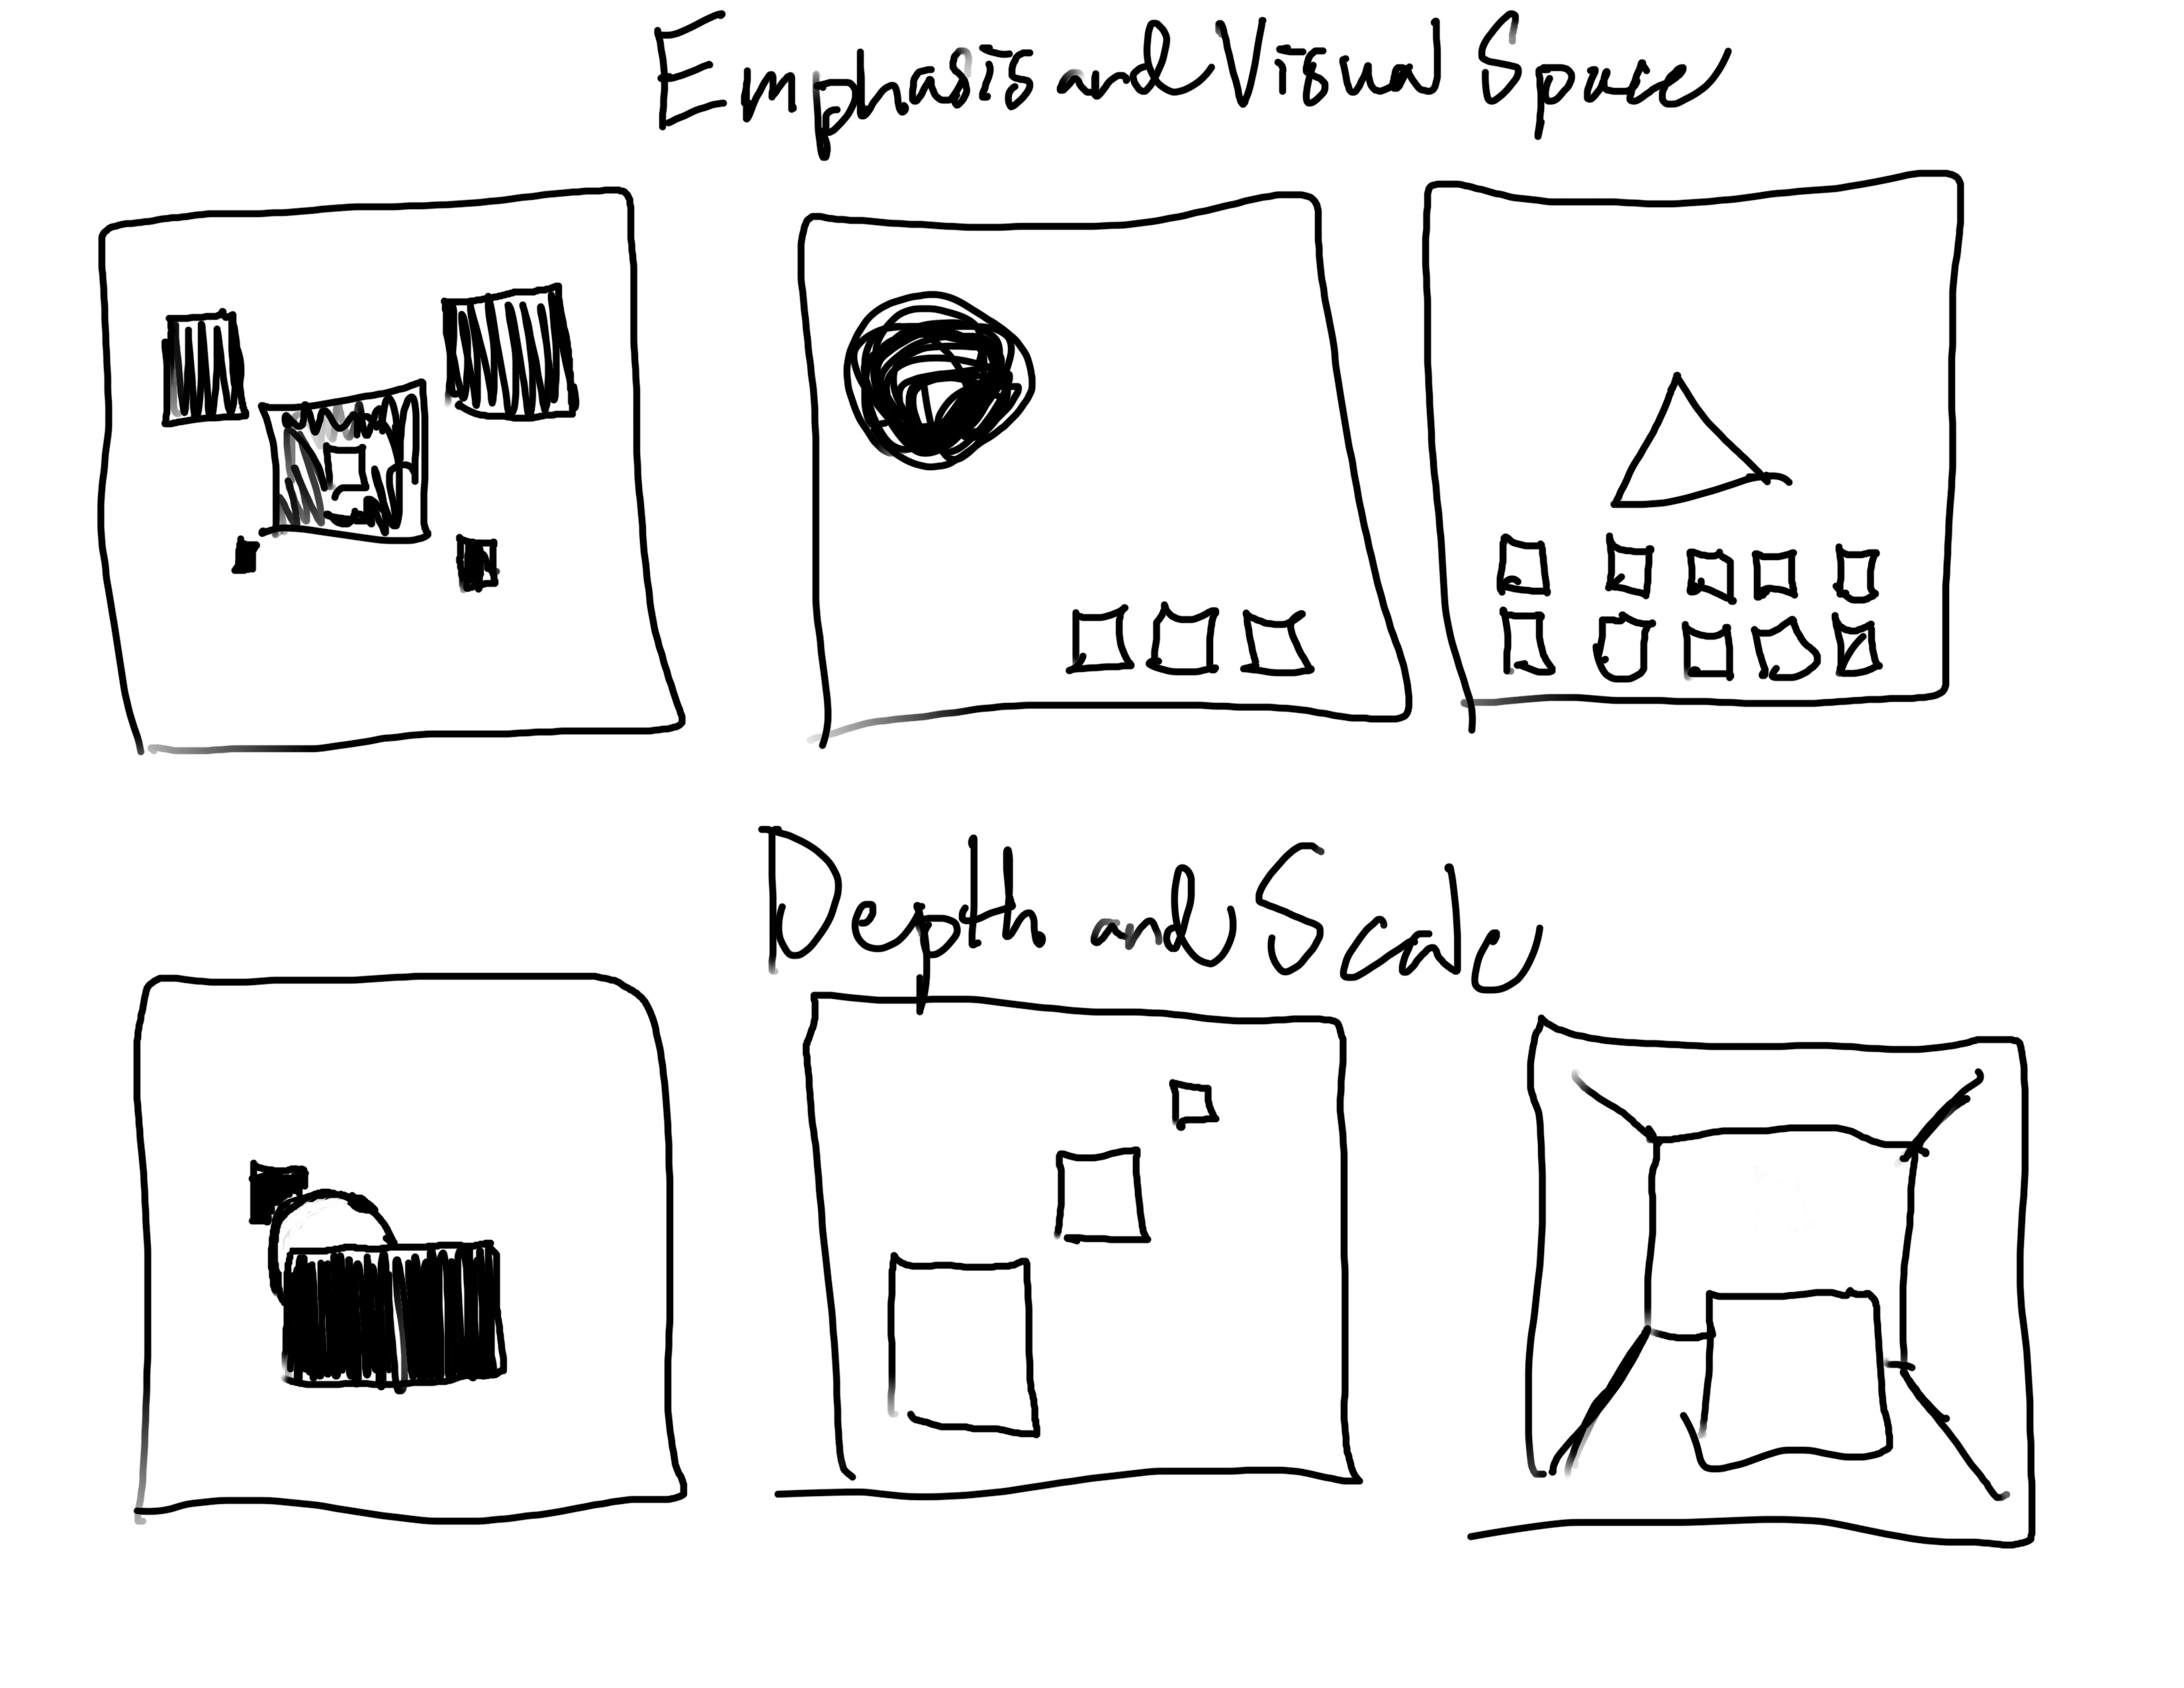 Emphasis and Visual Space
Depth and Scale